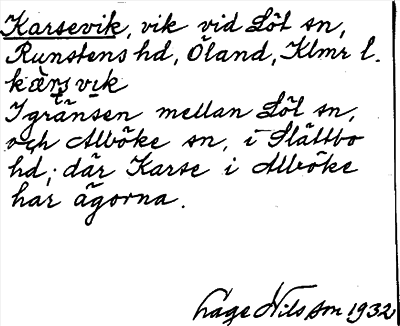 Karsevik, vik vid Löt sn,
Runstens hd, Öland, Klmr l.
kærsvik
I gränsen mellan Löt sn,
och Alböke sn, i Slättbo
hd; där Karse i Alböke
har ägorna.
Hage Nilsson 1932